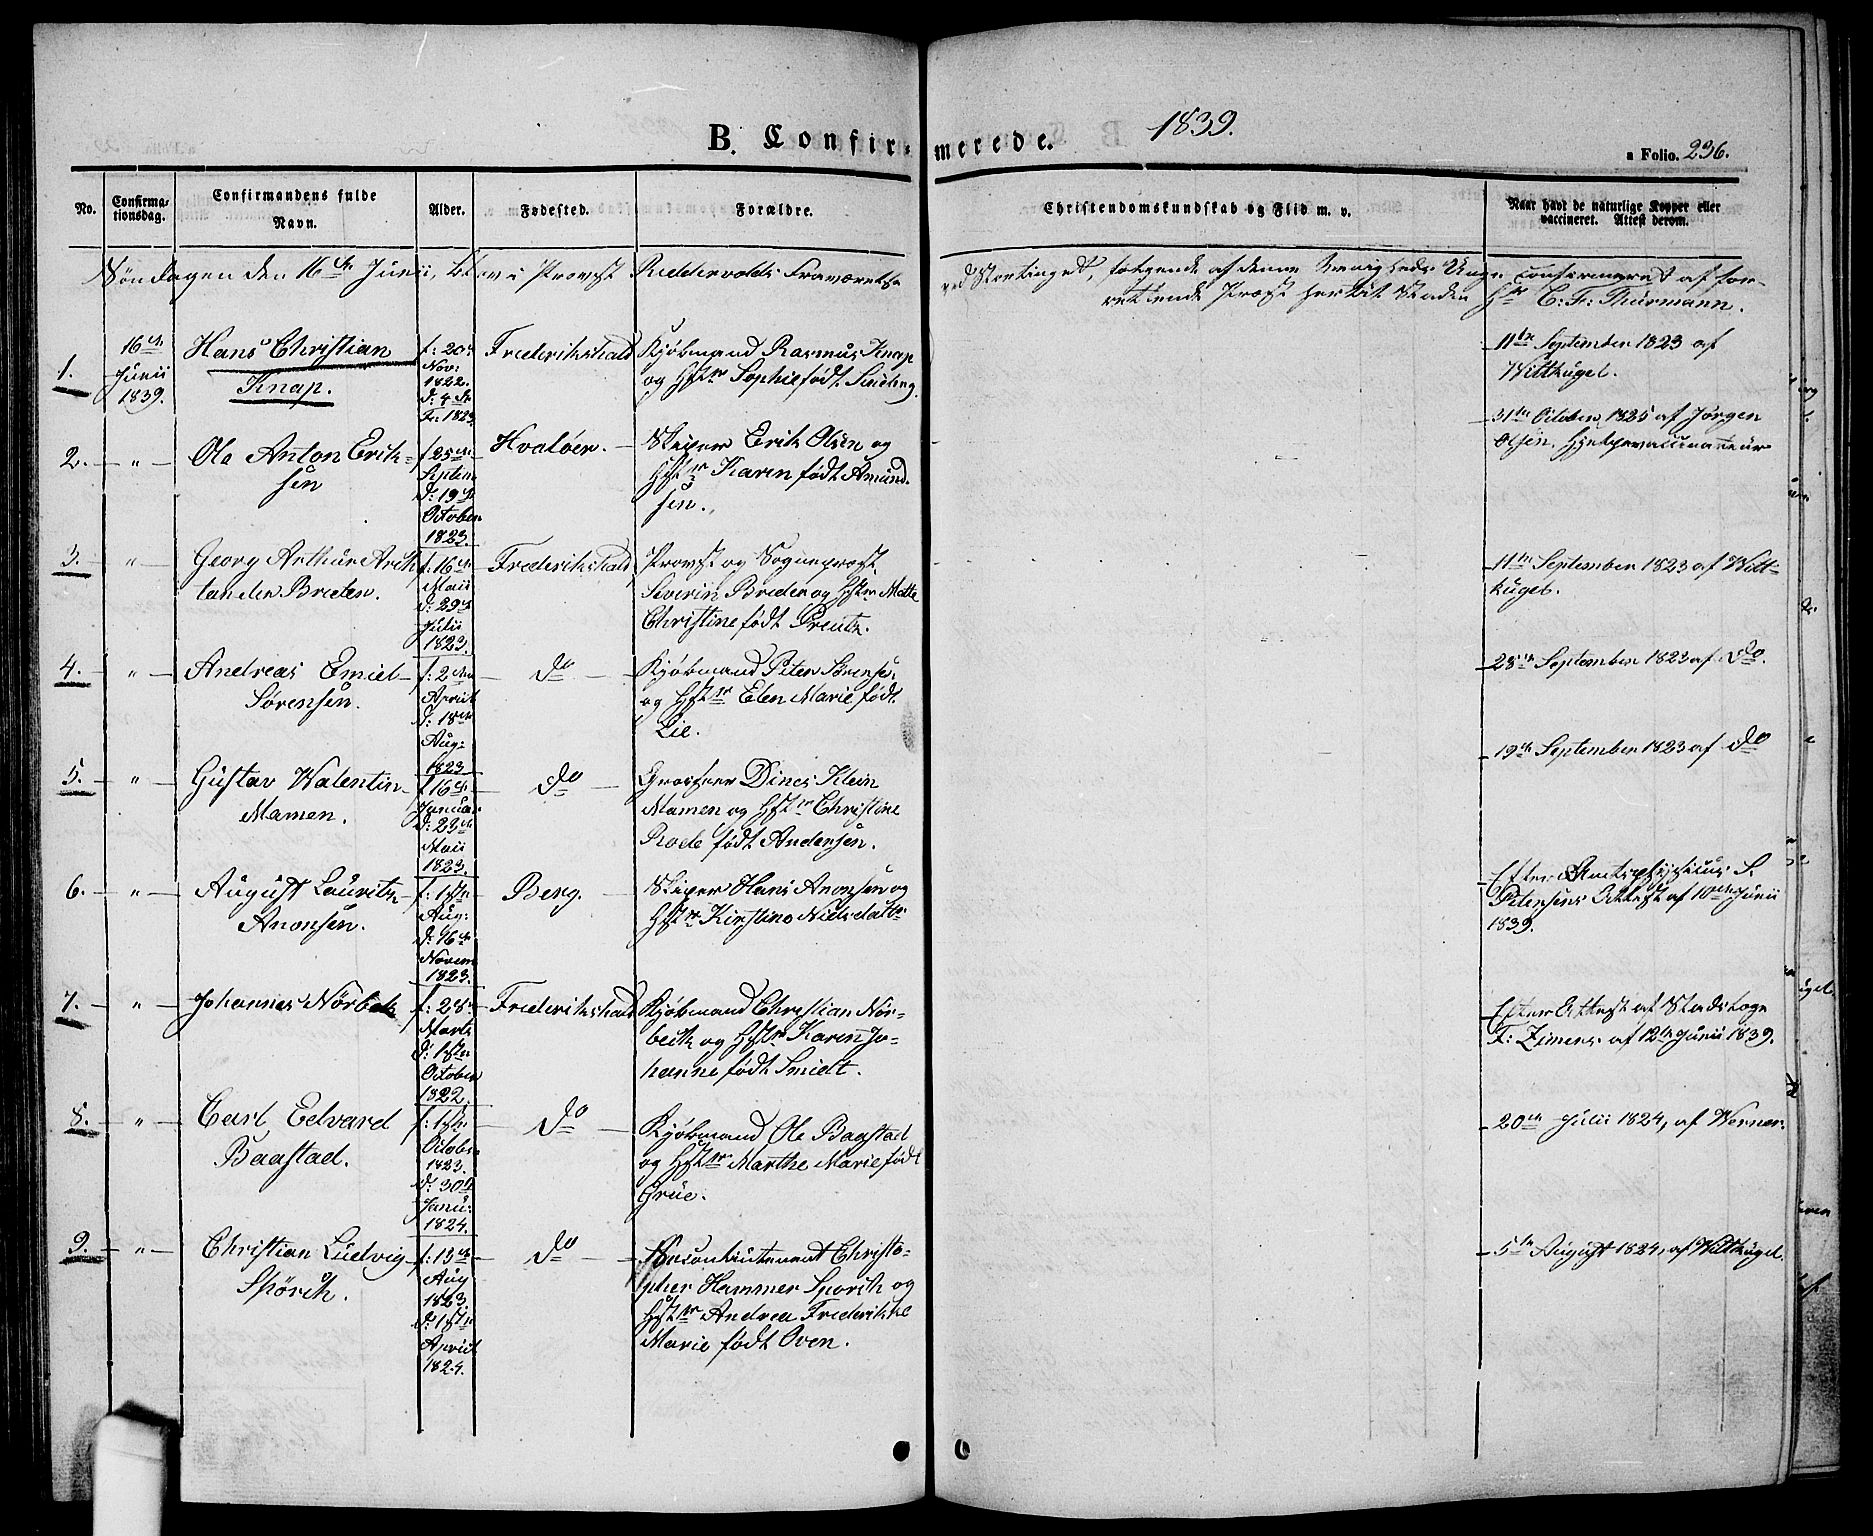 B. Confir=
merede.
1839.
a Folio. 236.
No.
Confirma-
tionsdag.
Confirmandens fulde
Navn.
Alder.
Fødested.
Forældre.
Christendomskundskab og Flid m. v.
Naar havt de naturlige Kopper eller
vaccineret. Attest derom.
Søndagen den 16de Junii, blev i Provst Riddervolds Fraværelse
ved Stortinget, følgende af denne Menigheds Unge confirmeret af for-
rettende Præst her til Staden Hr C: F: Thurmann.
1.
16de
Junii
1839.
Hans Christian
Knap.
f: 20de
Nov:
1822.
d: 4de
Fe: 1823
Frederikshald
Kjøbmand Rasmus Knap
og Hstr Sophie født Smeding.
11te September 1823 af
Witthügel.
2.
"
Ole Anton Erik-
sen
f 25de
Septem
d: 19de
October
1823.
Hvaløer.
Skiper Erik Olsen og
Hstr Karen født Amund-
sen.
31te October 1825 af Jørgen
Olsen, Hjelpevaccinateur
3.
"
Georg Arthur
Breder.
f: 16de
Maii
d: 29de
Julii
1823.
Frederikshald
Provst og Sognepræst
Severin Breder og Hstr Mette
Christine født Preutz.
11te September 1823 af Witt-
hügel.
4.
"
Andreas Emiel
Sørensen.
f: 2den
April
d: 18de
Aug:
1823
do
Kjøbmand Peter Sørensen
og Hstr Elen Marie født
Lie.
28de September 1823 af do.
5.
"
Gustav Walentin
Mamen.
f 16de
Janua:
d: 23de
Maii
1823.
do
Grosserer Dines Klein
Mamen og Hstr Christine
født Andersen.
19de September 1823 af do
6.
"
August Lauritz
Anonsen.
f: 1ste
Aug:
d: 16de
Novem
1823.
Berg.
Skiper Hans Anonsen og
Hstr Kirstine Nielsdatter
Efter Amtsphysicus S.
Petersens Attest af 10de Junii
1839.
7.
"
Johannes Nörbek
f: 28de
Marts
d: 1ste
October
1822.
Frederikshald
Kjøbmand Christian Nör-
beck og Hstr Karen Jo-
hanne født Smidt.
Efter Attest af Stadslæge
F: Zimers af 12te Junii 1839.
8.
"
Carl Edvard
Baastad.
f: 1ste
Octobr.
1823.
d: 30te
Janu:
1824.
do
Kjøbmand Ole Baastad
og Hstr Marthe Marie født
Grüe.
20de Julii 1824, af Werner.
9.
"
Christian Ludvig
Spörck.
f: 13de
Aug
1823
d: 1ste
April
1824.
do
Secondlieutenant Christo-
pher Hammer Sporck og
Hstr Andrea Frederikke
Marie født Oven.
5te August 1824, af Witthügel.